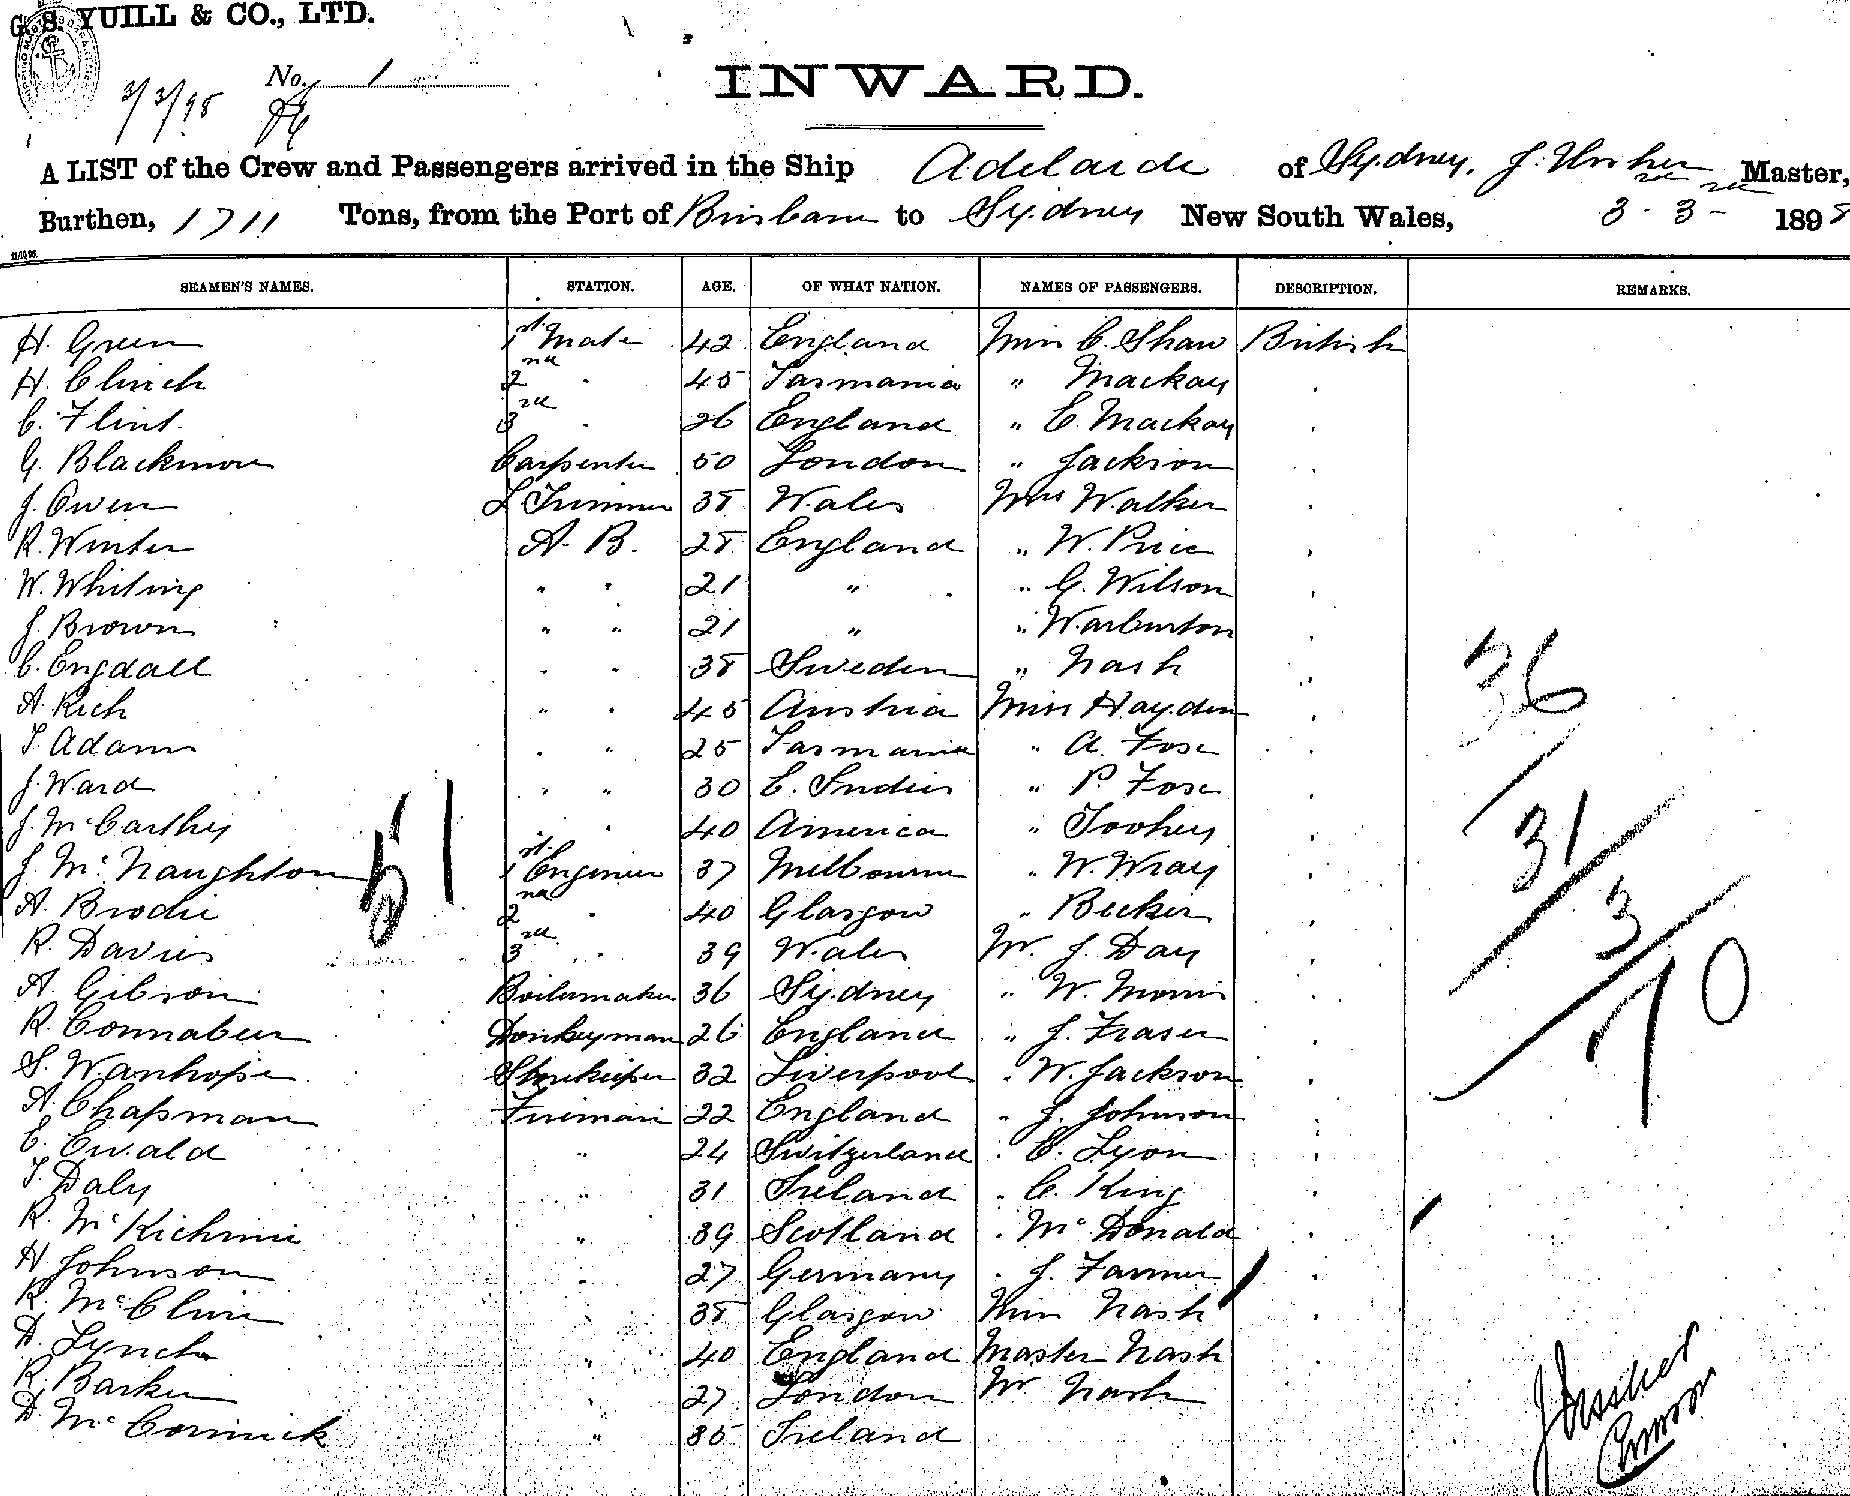 G. S. YUILL & CO., LTD.
3/3/98
No. 1
INWARD.
A LIST of the Crew and Passengers arrived in the Ship Adelaide of Sydney, J. Master,
Burthen, 1711 Tons, from the Port of Brisbane to Sydney New South Wales, 3 - 3 - 1898
SEAMEN'S NAMES. STATION. AGE. OF WHAT NATION. NAMES OF PASSENGERS. DESCRIPTION. REMARKS.
H. Green 1st Mate 42 England Miss C. Shaw British
H. Clinch 2nd " 45 Tasmania " Mackay "
C. Flint 3rd " 26 England " C. Mackay "
G. Blackmore Carpenter 50 London " Jackson "
J. Owen L Trimmer 38 Wales Mrs Walker "
R. Winter A. B. 28 England " W. Price "
W. Whiting " " 21 " " G. Wilson "
J. Brown " " 21 " " Warburton "
C. Engdall " " 38 Sweden " Nash "
A. Rich " " 45 Austria Miss Hayden "
T. Adams " " 25 Tasmania " A. Fose "
J. Ward " " 30 E. Indies " P. Fose "
J. McCarthy " 40 America " Toohey "
J. McNaughton 1st Engineer 37 Melbourne " W. Wray "
A. Brodie 2nd " 40 Glasgow " Becker "
R. Davies 3rd " 39 Wales Mr. J. Day "
A. Gibson Boilermaker 36 Sydney " W. Morris "
R. Connabeer Donkeyman 26 England " J. Fraser "
S. Wanhope Storekeeper 32 Liverpool " W. Jackson "
A. Chapman Fireman 22 England " J. Johnson "
E. Ewald " 24 Switzerland " C. Lyon "
T. Daly " 31 Ireland " C. King "
R. McKichnie " 39 Scotland " McDonald "
H Johnson " 27 Germany " J. Farmer "
R. McClure " 38 Glasgow Miss Nash "
D. Lynch " 40 England Master Nash "
R. Barker " 27 London Mr Nash "
D McCormick " 35 Ireland
51
36
31
3
70